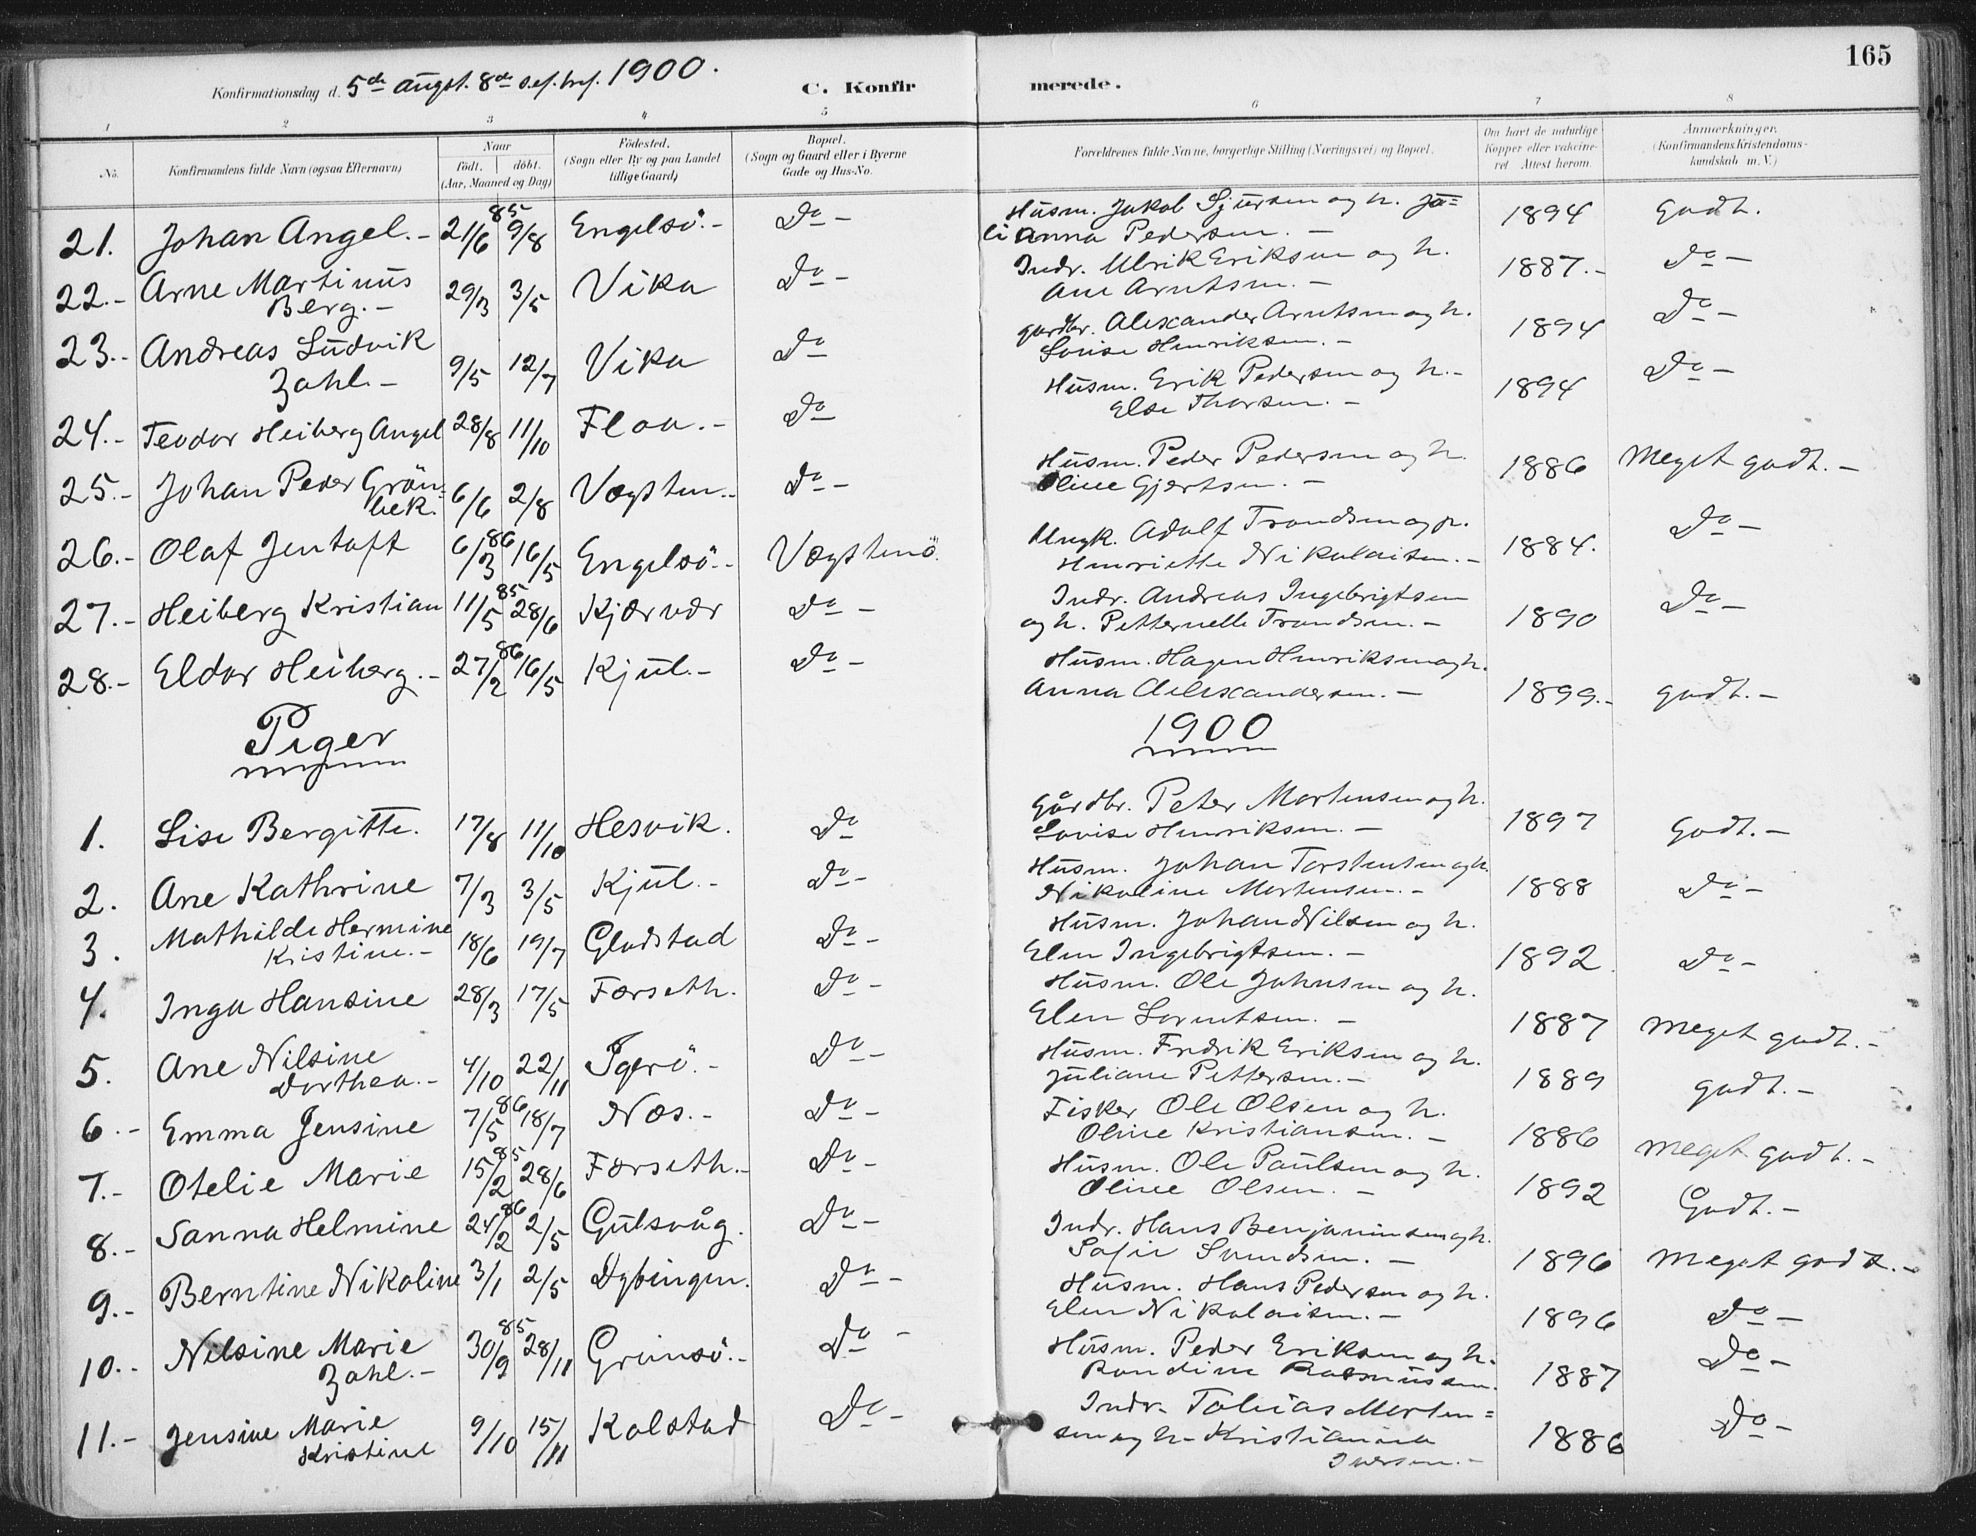 165
Konfirmationsdag d. 5te augst. 8de sept. 1900.
C. Konfirmerede.
1 2 3 4 5 6 7 8
No.
Konfirmandens fulde Navn (ogsaa Efternavn)
Naar
født. døbt.
(Aar, Maaned og Dag)
Fødested.
(Sogn eller By og paa Landet
tillige Gaard)
Bopæl.
(Sogn og Gaard eller i Byerne
Gade og Hus-No.
Forældrenes fulde Navne, borgerlige Stilling (Næringsvei) og Bopæl.
Om havt de naturlige
Kopper eller vakcine-
ret Attest herom.
Anmærkninger.
(Konfirmandens Kristendoms-
kundskab m. V.)
21. Johan Angel.- 21/6 85 9/8 Engelsö.- Do - Husm. Jakob Sjursen og h. Ju=
lianna Pedersen. - 1894 Godt.
22.- Arne Martinus
Berg.- 29/3 3/5 Vika Do - Indr. Ulrik Eriksen og h.
Ane Arntsen. - 1887.- Do -
23.- Andreas Ludvik
Zahl.- 9/5 12/7 Vika Do gardbr. Alexander Arntsen og h.
Lovise Henriksen. - 1894 Do -
24.- Teodor Heiberg Angel 28/8 11/10 Floa.- Do Husm. Erik Pedersen og h.-
Else Thorsen. - 1894 Do -
25.- Johan Peder Grön-
bek. 6/6 2/8 Vægsten.- Do - Husm. Peder Pedersen og h.
Oline Gjertsen. - 1886 Meget godt.-
26.- Olaf Jentoft 6/3 86 16/5 Engelsö.- Vægstenö. Ungk. Adolf Trondsen og p.
Henriette Nikolaisen.- 1884. Do -
27.- Heiberg Kristian 11/5 85 28/6 Kjærvær Do - Indr. Andreas Ingebrigtsen
og h. Petternelle Trondsen.- 1890 Do -
28.- Eldor Heiberg.- 27/2 86 16/5 Kjul.- Do - Husm. Hagen Henriksen og h.
Anna Alexandersen.- 1899.- godt.-
Piger 1900
1. Lise Bergitte. 17/8 11/10 Hesvik. Do Gårdbr. Peter Mortensen og h.
Lovise Henriksen. - 1897 Godt.-
2. Ane Kathrine 7/3 3/5 Kjul.- Do - Husm. Johan Torstensen og h.
Nikoline Mortensen.- 1888 Do -
3. Mathilde Hermine
Kristine.- 18/6 19/7 Gladstad Do - Husm. Johan Nilsen og h.
Elen Ingebrigtsen. - 1892 Do -
4. Inga Hansine 28/3 17/5 Færseth. Do - Husm. Ole Johnsen og h.
Elen Lorntsen. - 1887 Meget godt.-
5. Ane Nilsine
Dorthea.- 4/10 22/11 Igerö.- Do - Husm. Fredrik Eriksen og h.
Juliane Pettersen.- 1889 godt.-
6.- Emma Jensine 7/5 86 18/7 Næs.- Do - Fisker Ole Olsen og h.
Oline Kristiansen. - 1886 Meget godt.-
7.- Otelie Marie 15/2 85 28/6 Færseth.- Do - Husm. Ole Paulsen og h.
Oline Olsen. - 1892 Godt.-
8.- Sanna Helmine 24/2 86 2/5 Gulsvåg. Do - Indr. Hans Benjaminsen og h.
Sofie Svendsen. - 1896 Meget godt.-
9.- Berntine Nikoline 3/1 2/5 Dybingen. Do - Husm. Hans Pedersen og h.
Elen Nikolaisen.- 1896 Do -
10.- Nilsine Marie
Zahl.- 30/9 85 28/11 Grimsö.- Do - Husm. Peder Eriksen og h.
Rondine Rasmussen. 1887 Do -
11.- Jensine Marie
Kristine 9/10 15/11 Kolstad Do - Indr. Tobias Morten=
sen og h- Kristianna
Iversen.- 1886 Do -